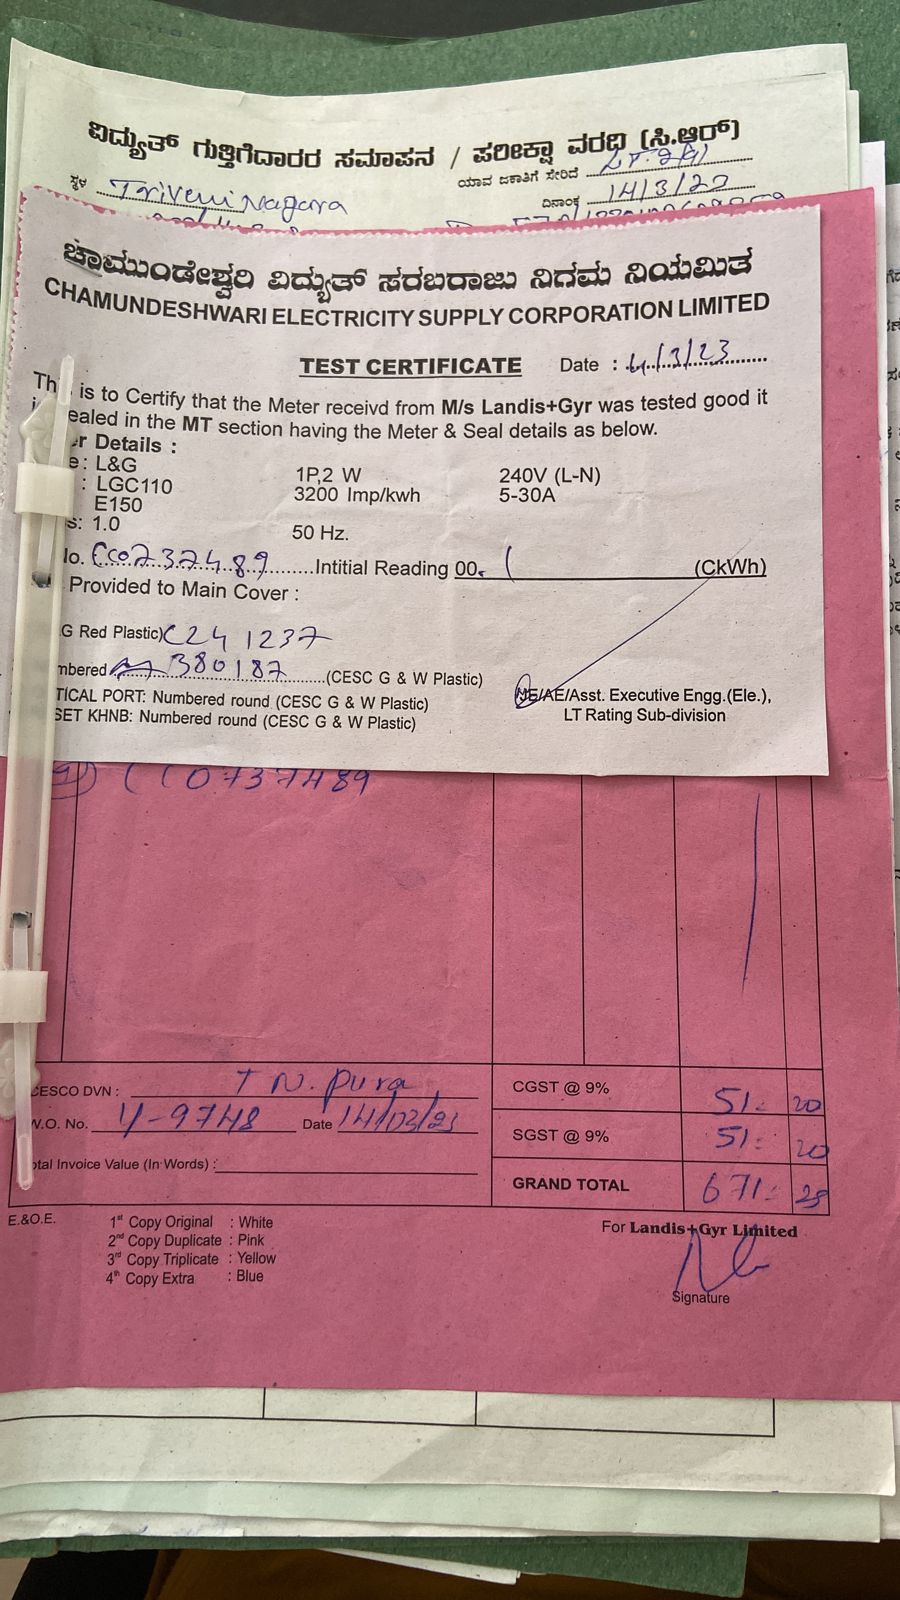 ವಿದ್ಯುತ್ ಗುತ್ತಿಗೆದಾರರ ಸಮಾಪನ / ಪರೀಕ್ಷಾ ವರದಿ (ಸಿ.ಆರ್)
ಯಾವ ಜಕಾತಿಗೆ ಸೇರಿದೆ
ಸ್ಥಳ Triveni Nagara
ದಿನಾಂಕ 14/3/23
ಚಾಮುಂಡೇಶ್ವರಿ ವಿದ್ಯುತ್ ಸರಬರಾಜು ನಿಗಮ ನಿಯಮಿತ
CHAMUNDESHWARI ELECTRICITY SUPPLY CORPORATION LIMITED
TEST CERTIFICATE Date : 4/3/23
is to Certify that the Meter receivd from M/s Landis+Gyr was tested good it
ealed in the MT section having the Meter & Seal details as below.
r Details :
e : L&G 1P,2 W 240V (L-N)
: LGC110 3200 Imp/kwh 5-30A
E150
s: 1.0 50 Hz.
lo. CC0737489 Intitial Reading 00. 1 (CkWh)
Provided to Main Cover :
G Red Plastic) C241237
mbered 380187 (CESC G & W Plastic)
TICAL PORT: Numbered round (CESC G & W Plastic)
SET KHNB: Numbered round (CESC G & W Plastic)
/AE/Asst. Executive Engg.(Ele.),
LT Rating Sub-division
CC0737489
CESCO DVN : T N. Pura
W.O. No. Y-9748 Date 14/03/23
otal Invoice Value (In Words) :
CGST @ 9% 51 20
SGST @ 9% 51 20
GRAND TOTAL 671
E.&O.E.
1st Copy Original : White
2nd Copy Duplicate : Pink
3rd Copy Triplicate : Yellow
4th Copy Extra : Blue
For Landis+Gyr Limited
Signature